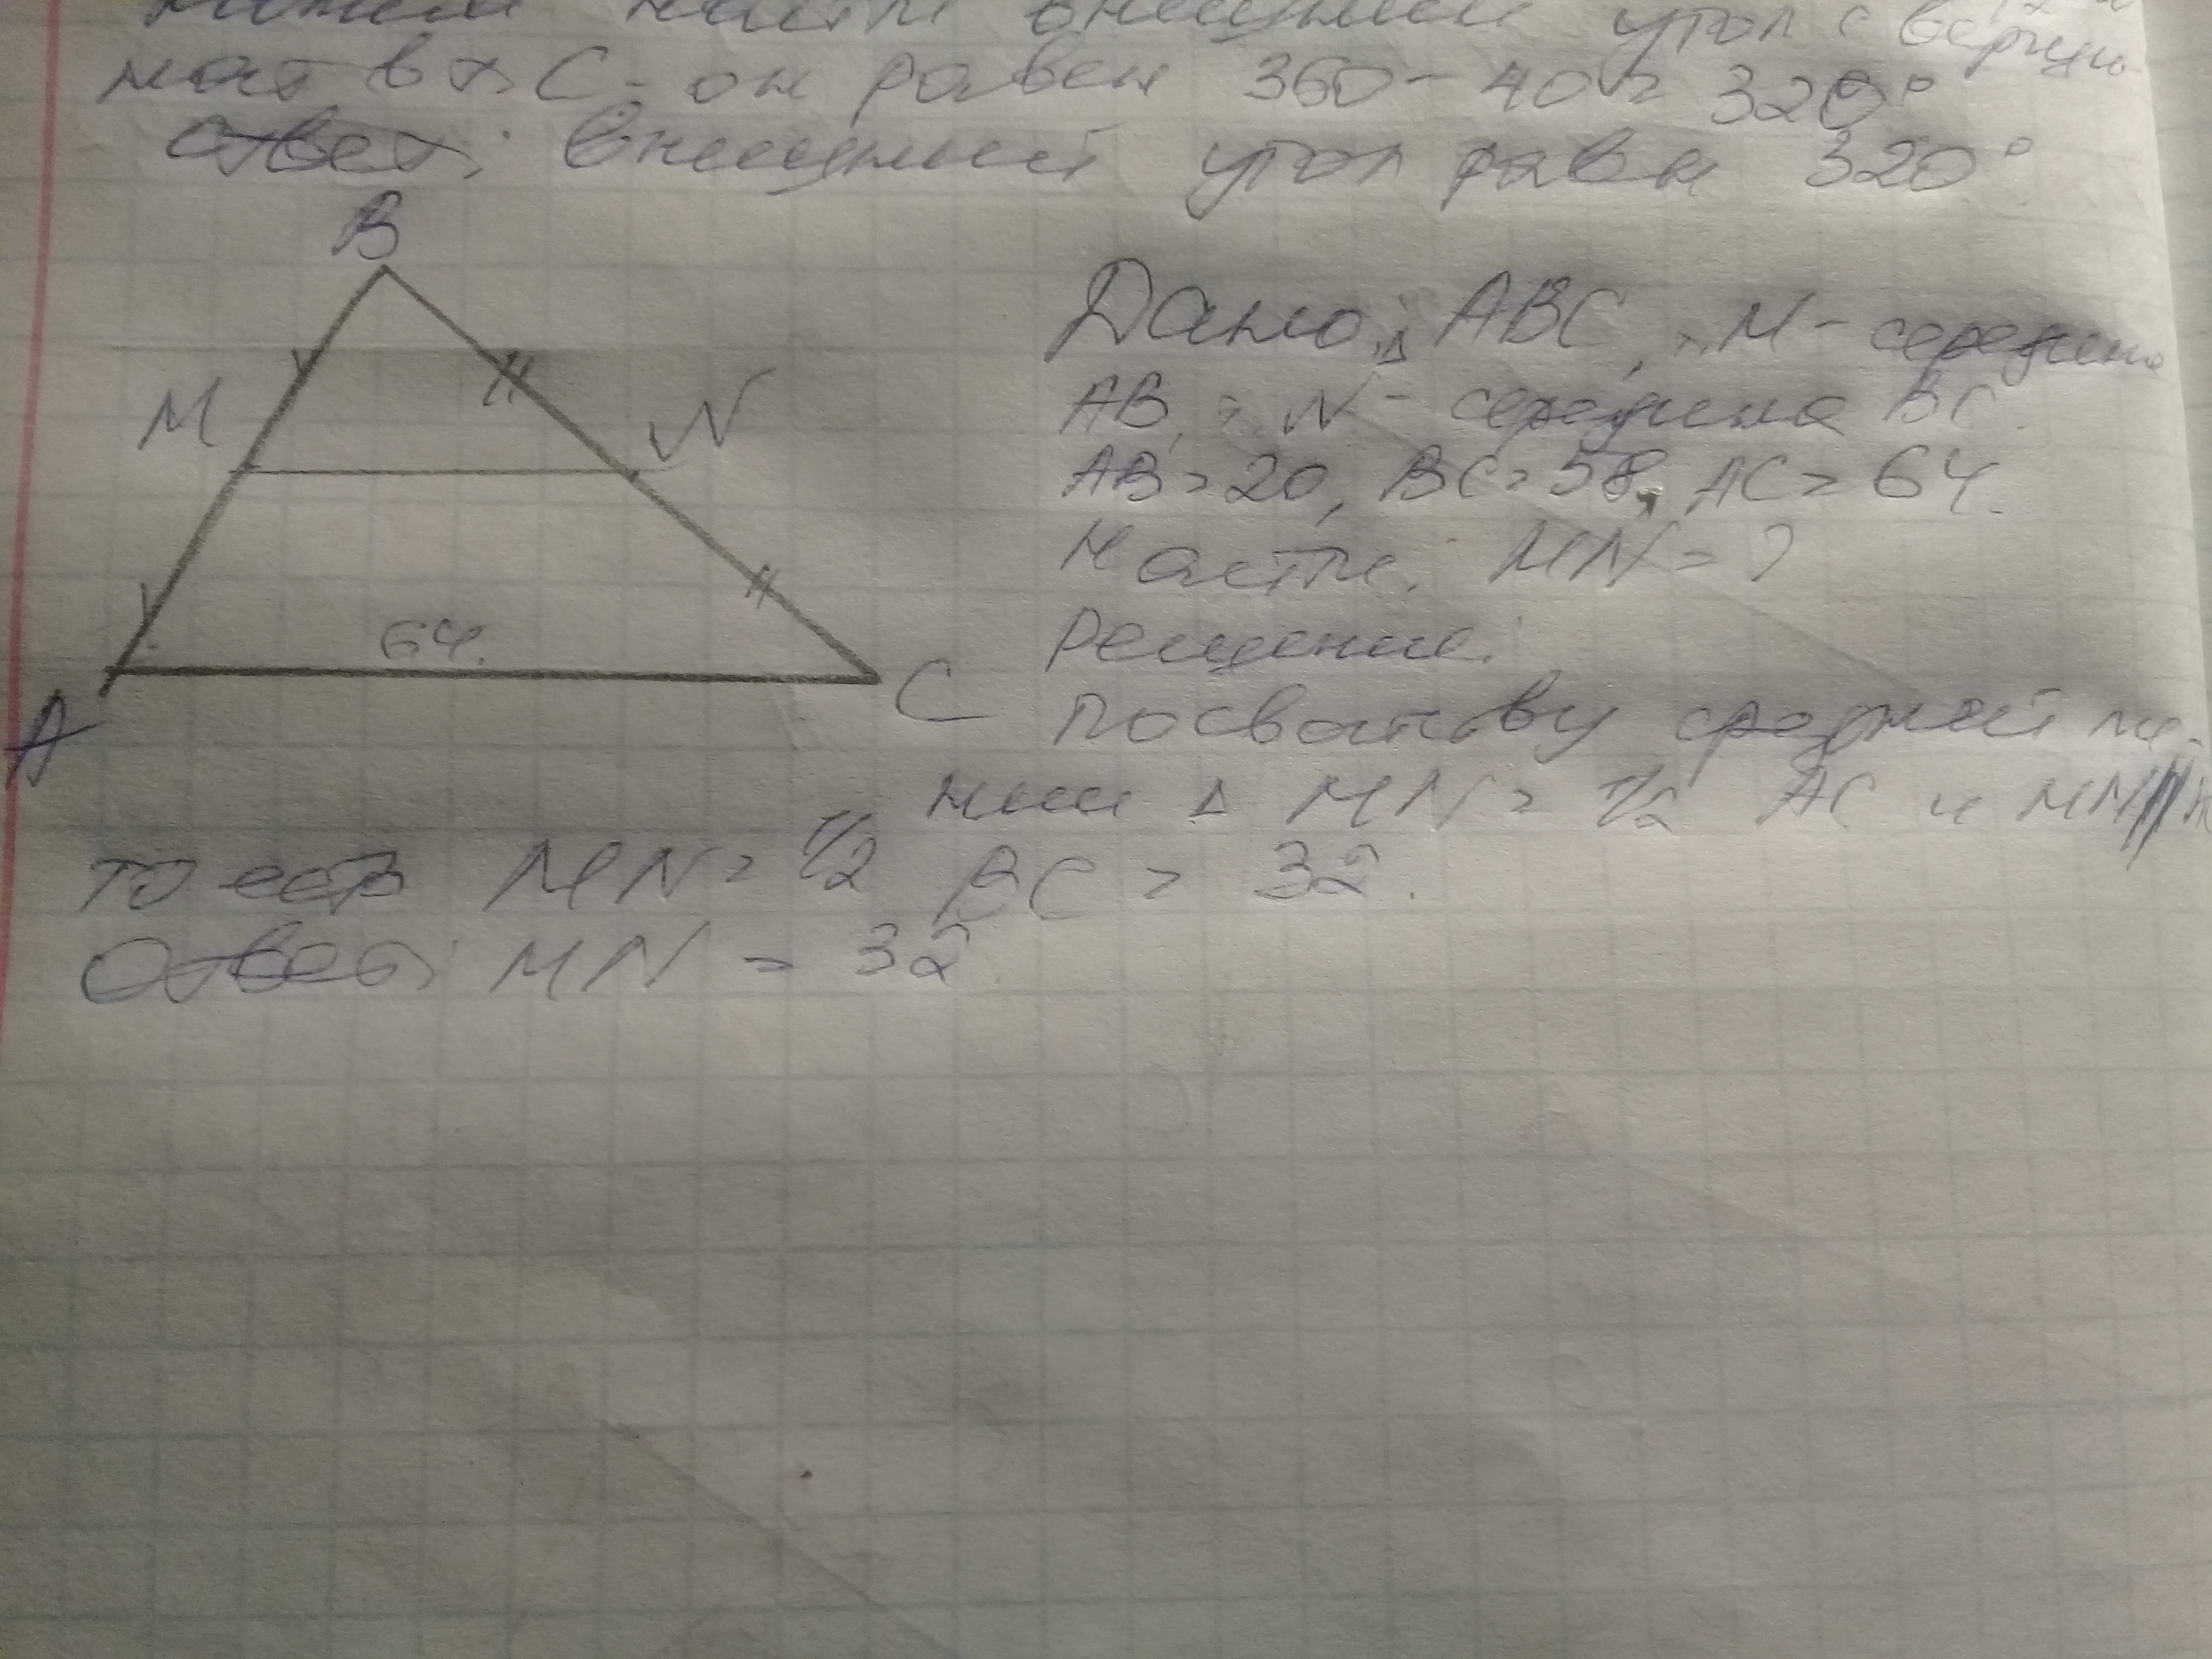 найти внешний угол с верши
ной в т. C - он равен 360 - 40 = 320°
Ответ: внешний угол равен 320°
B
Дано: Δ ABC, M - середина
AB, N - середина BC.
M N
AB = 20, BC = 58, AC = 64.
Найти: MN = ?
Решение:
64.
A C
По свойству средней ли-
нии Δ MN = 1/2 AC и MN || AC
то есть MN = 1/2 BC = 32.
Ответ: MN = 32.